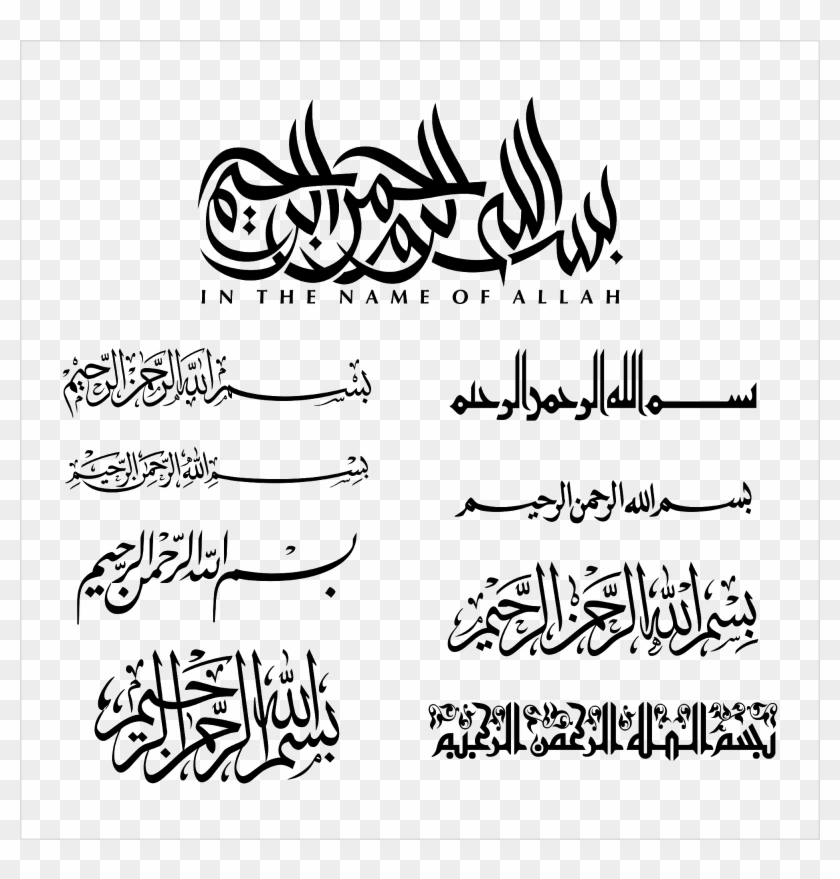 بسم الله الرحمن الرحيم
IN THE NAME OF ALLAH
بِسْمِ اللهِ الرَّحْمنِ الرَّحِيْمِ
بسم الله الرحمن الرحيم
بِسْمِ اللهِ الرَّحْمنِ الرَّحِيْمِ
بسم الله الرحمن الرحيم
بسم الله الرّحمن الرّحيم
بِسْمِ اللهِ الرَّحْمنِ الرَّحِيْمِ
بسم الله الرحمن الرحيم
بسم الله الرحمن الرحيم